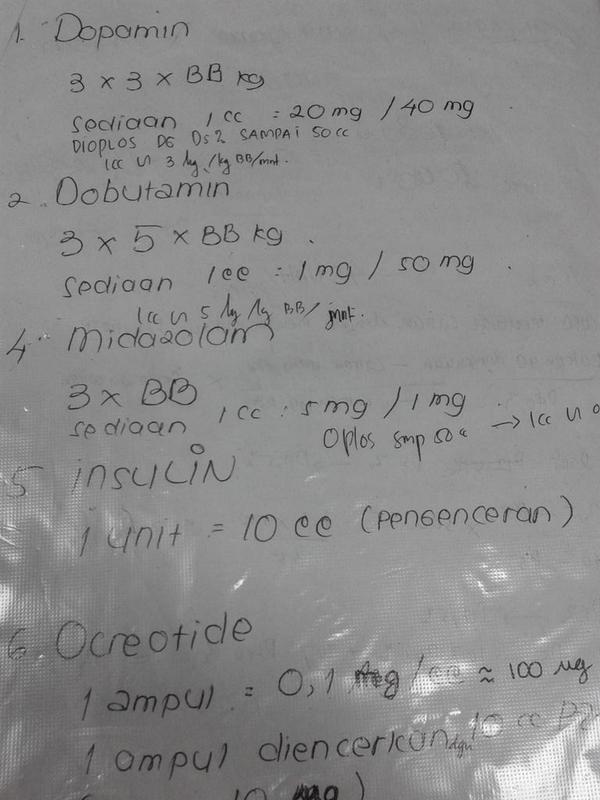 1. Dopamin
3 x 3 x BB kg
sediaan 1 cc = 20 mg / 40 mg
DIOPLOS DG D5 2 SAMPAI 50 cc
1cc ∽ 3 /kg BB/mnt.
2. Dobutamin
3 x 5 x BB kg.
sediaan 1 cc : 1 mg / 50 mg.
1cc ∽ 5 BB/ mnt.
4. Midazolam
3 x BB
sediaan 1 cc : 5 mg / 1 mg
Oplos smp 50 cc → 1cc ∽
5 INSULIN
1 unit = 10 cc (pengenceran)
6. Ocreotide
1 ampul = 0,1 mg / cc ≈ 100 ug
1 ampul diencerkan dgn 10 cc
10 mg )